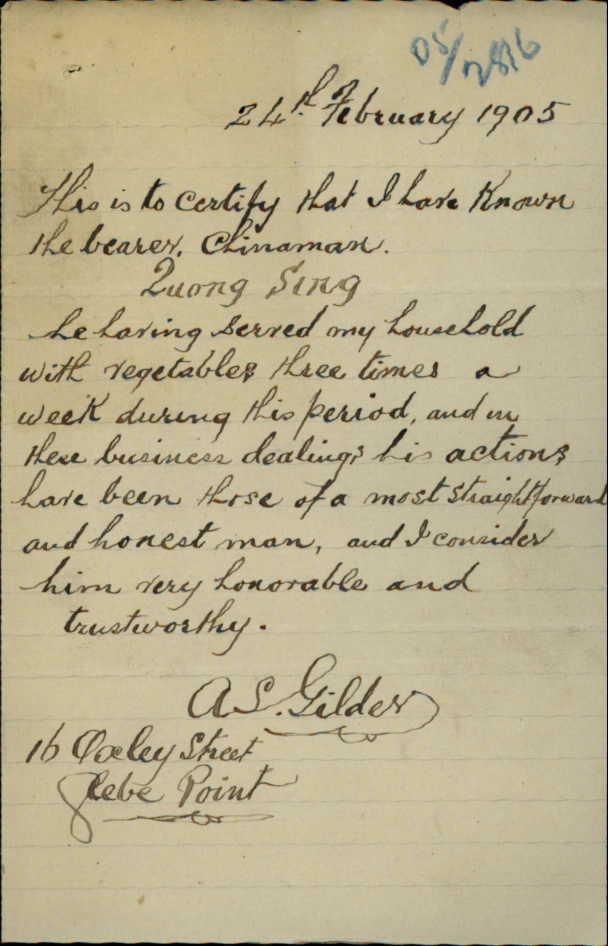 05/2816
24th February 1905
This is to certify that I have Known
the bearer, Chinaman.
Quong Sing
he having served my household
with vegetables three times a
week during this period, and in
these business dealings his actions
have been those of a most straightforward
and honest man, and I consider
him very honorable and
trustworthy.
A S. Gilder
16 Oxley Street
Glebe Point